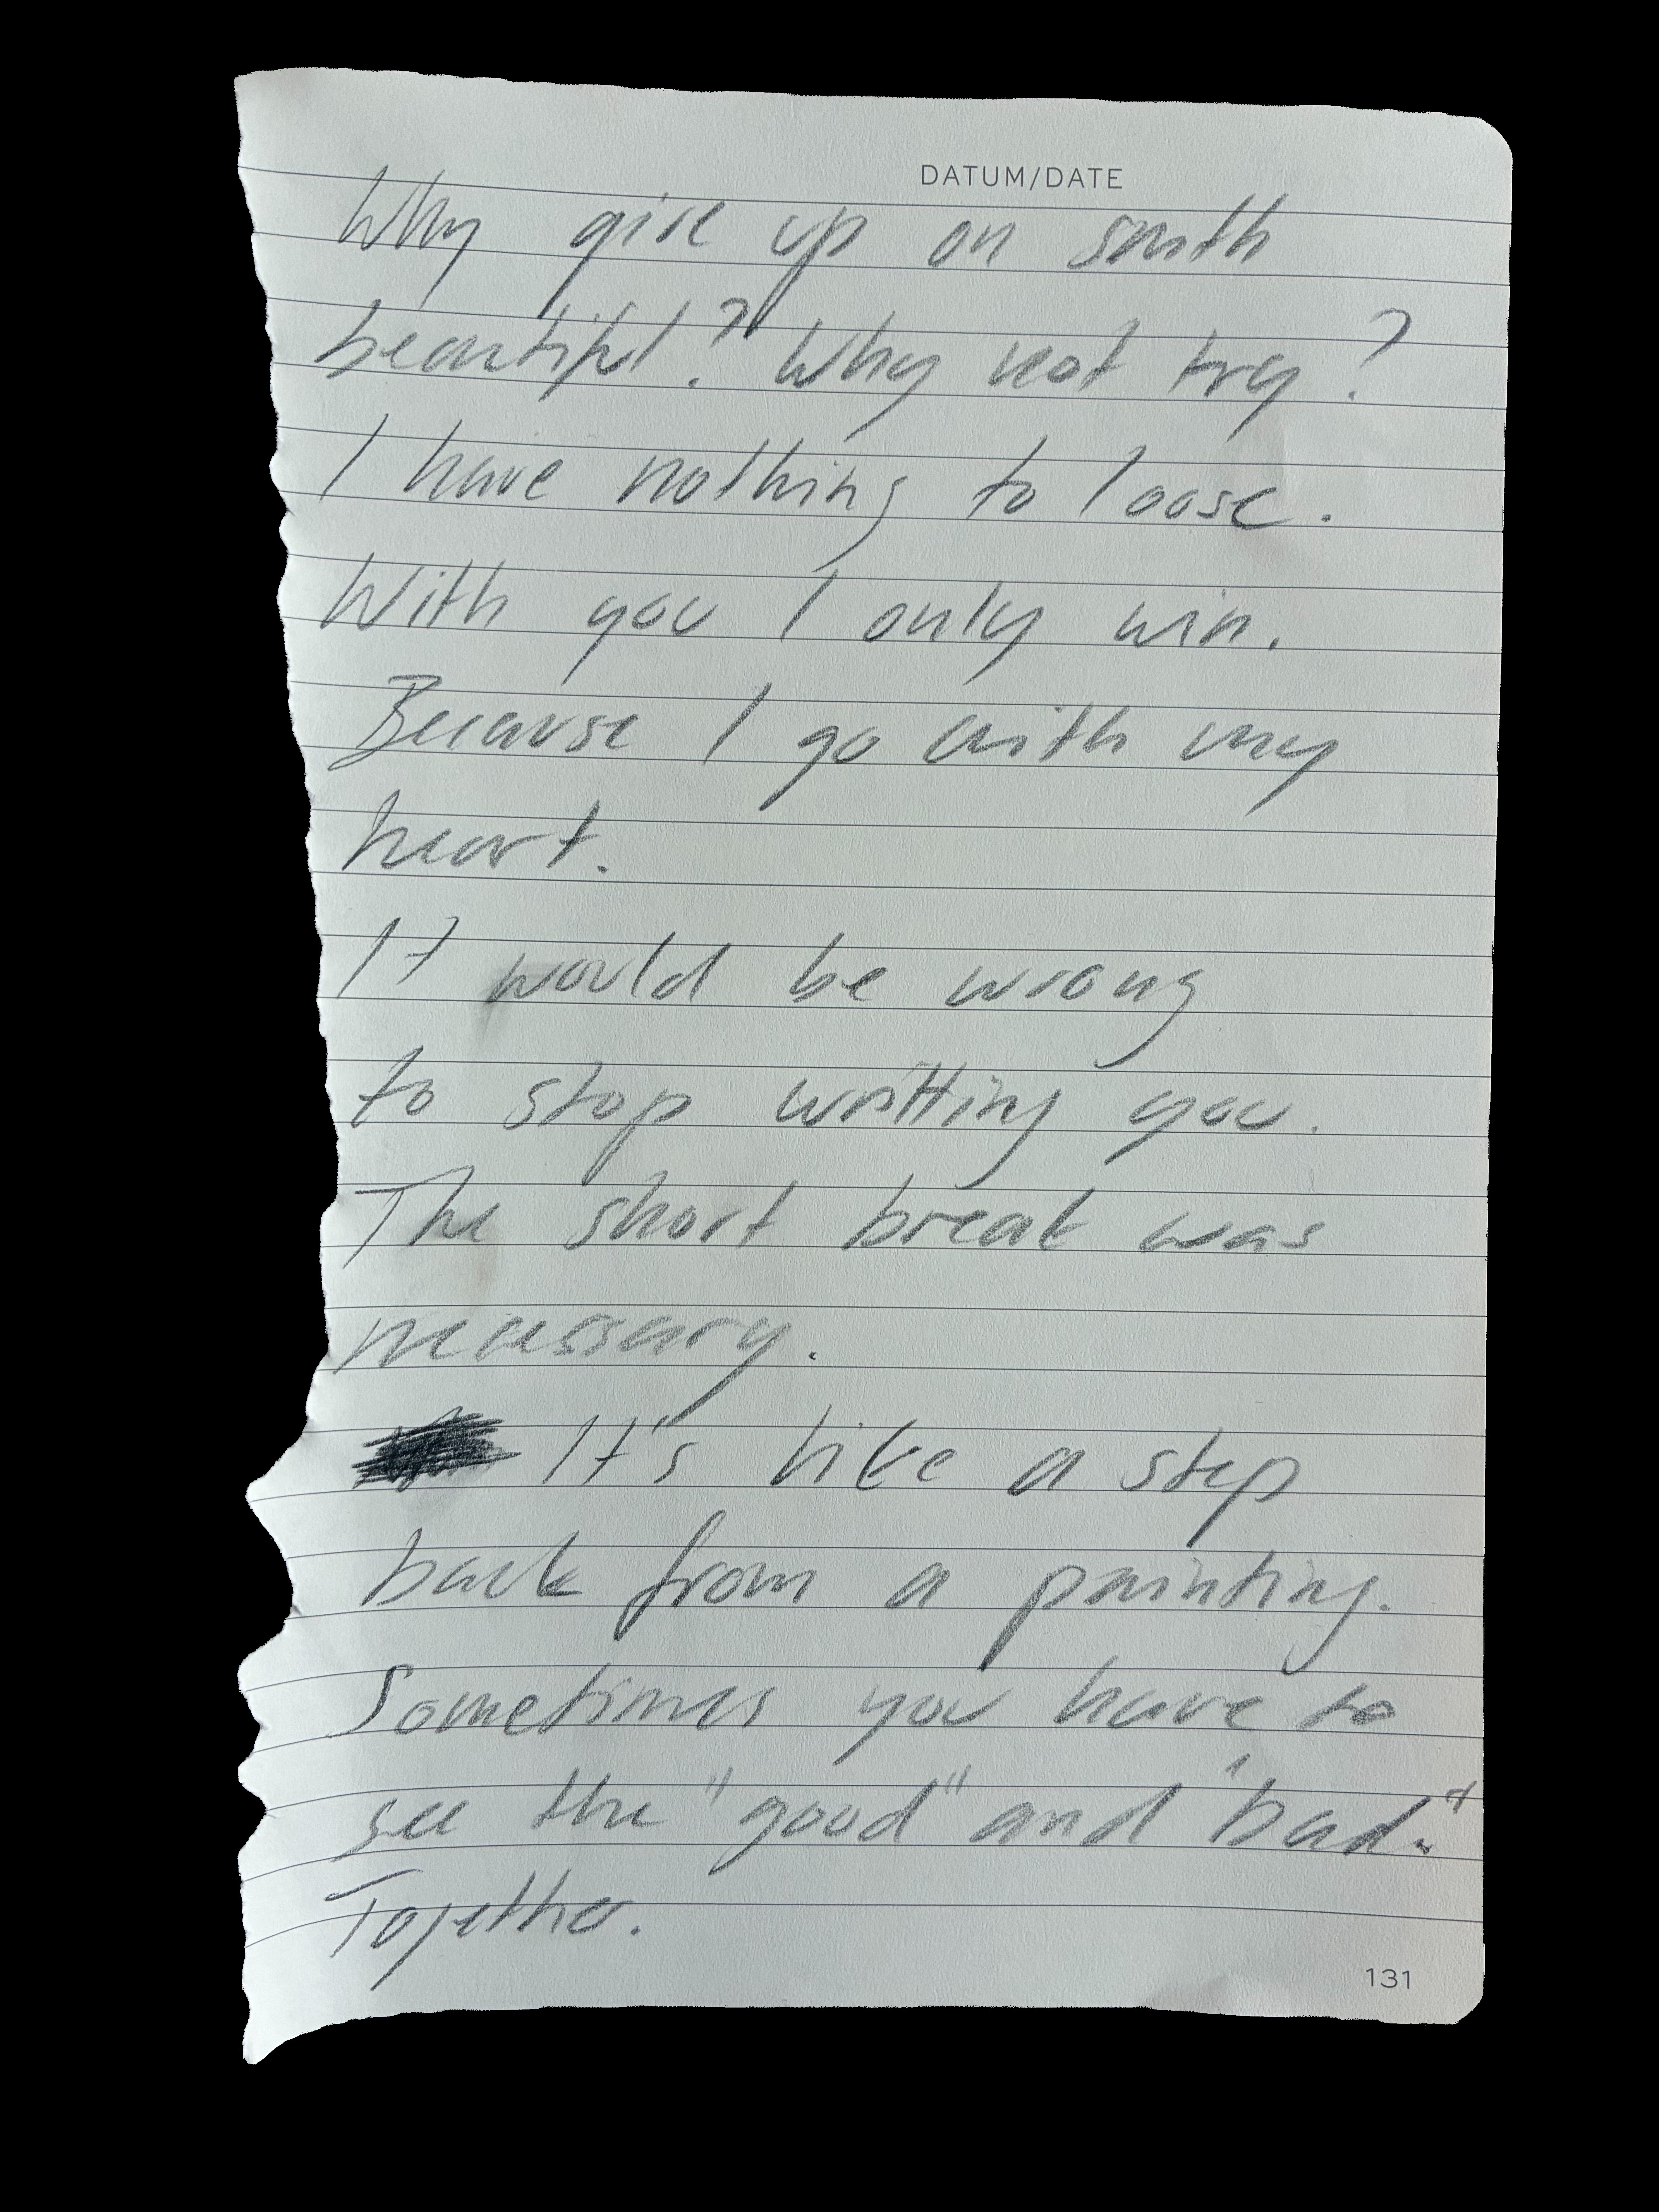 DATUM/DATE
Why give up on smth
beautiful? Why not try?
I have nothing to loose.
With you I only win.
Because I go with my
heart.
It would be wrong
to stop writting you.
The short break was
necessary.
It's like a step
back from a painting.
Sometimes you have to
see the "good" and "bad."
Together.
131